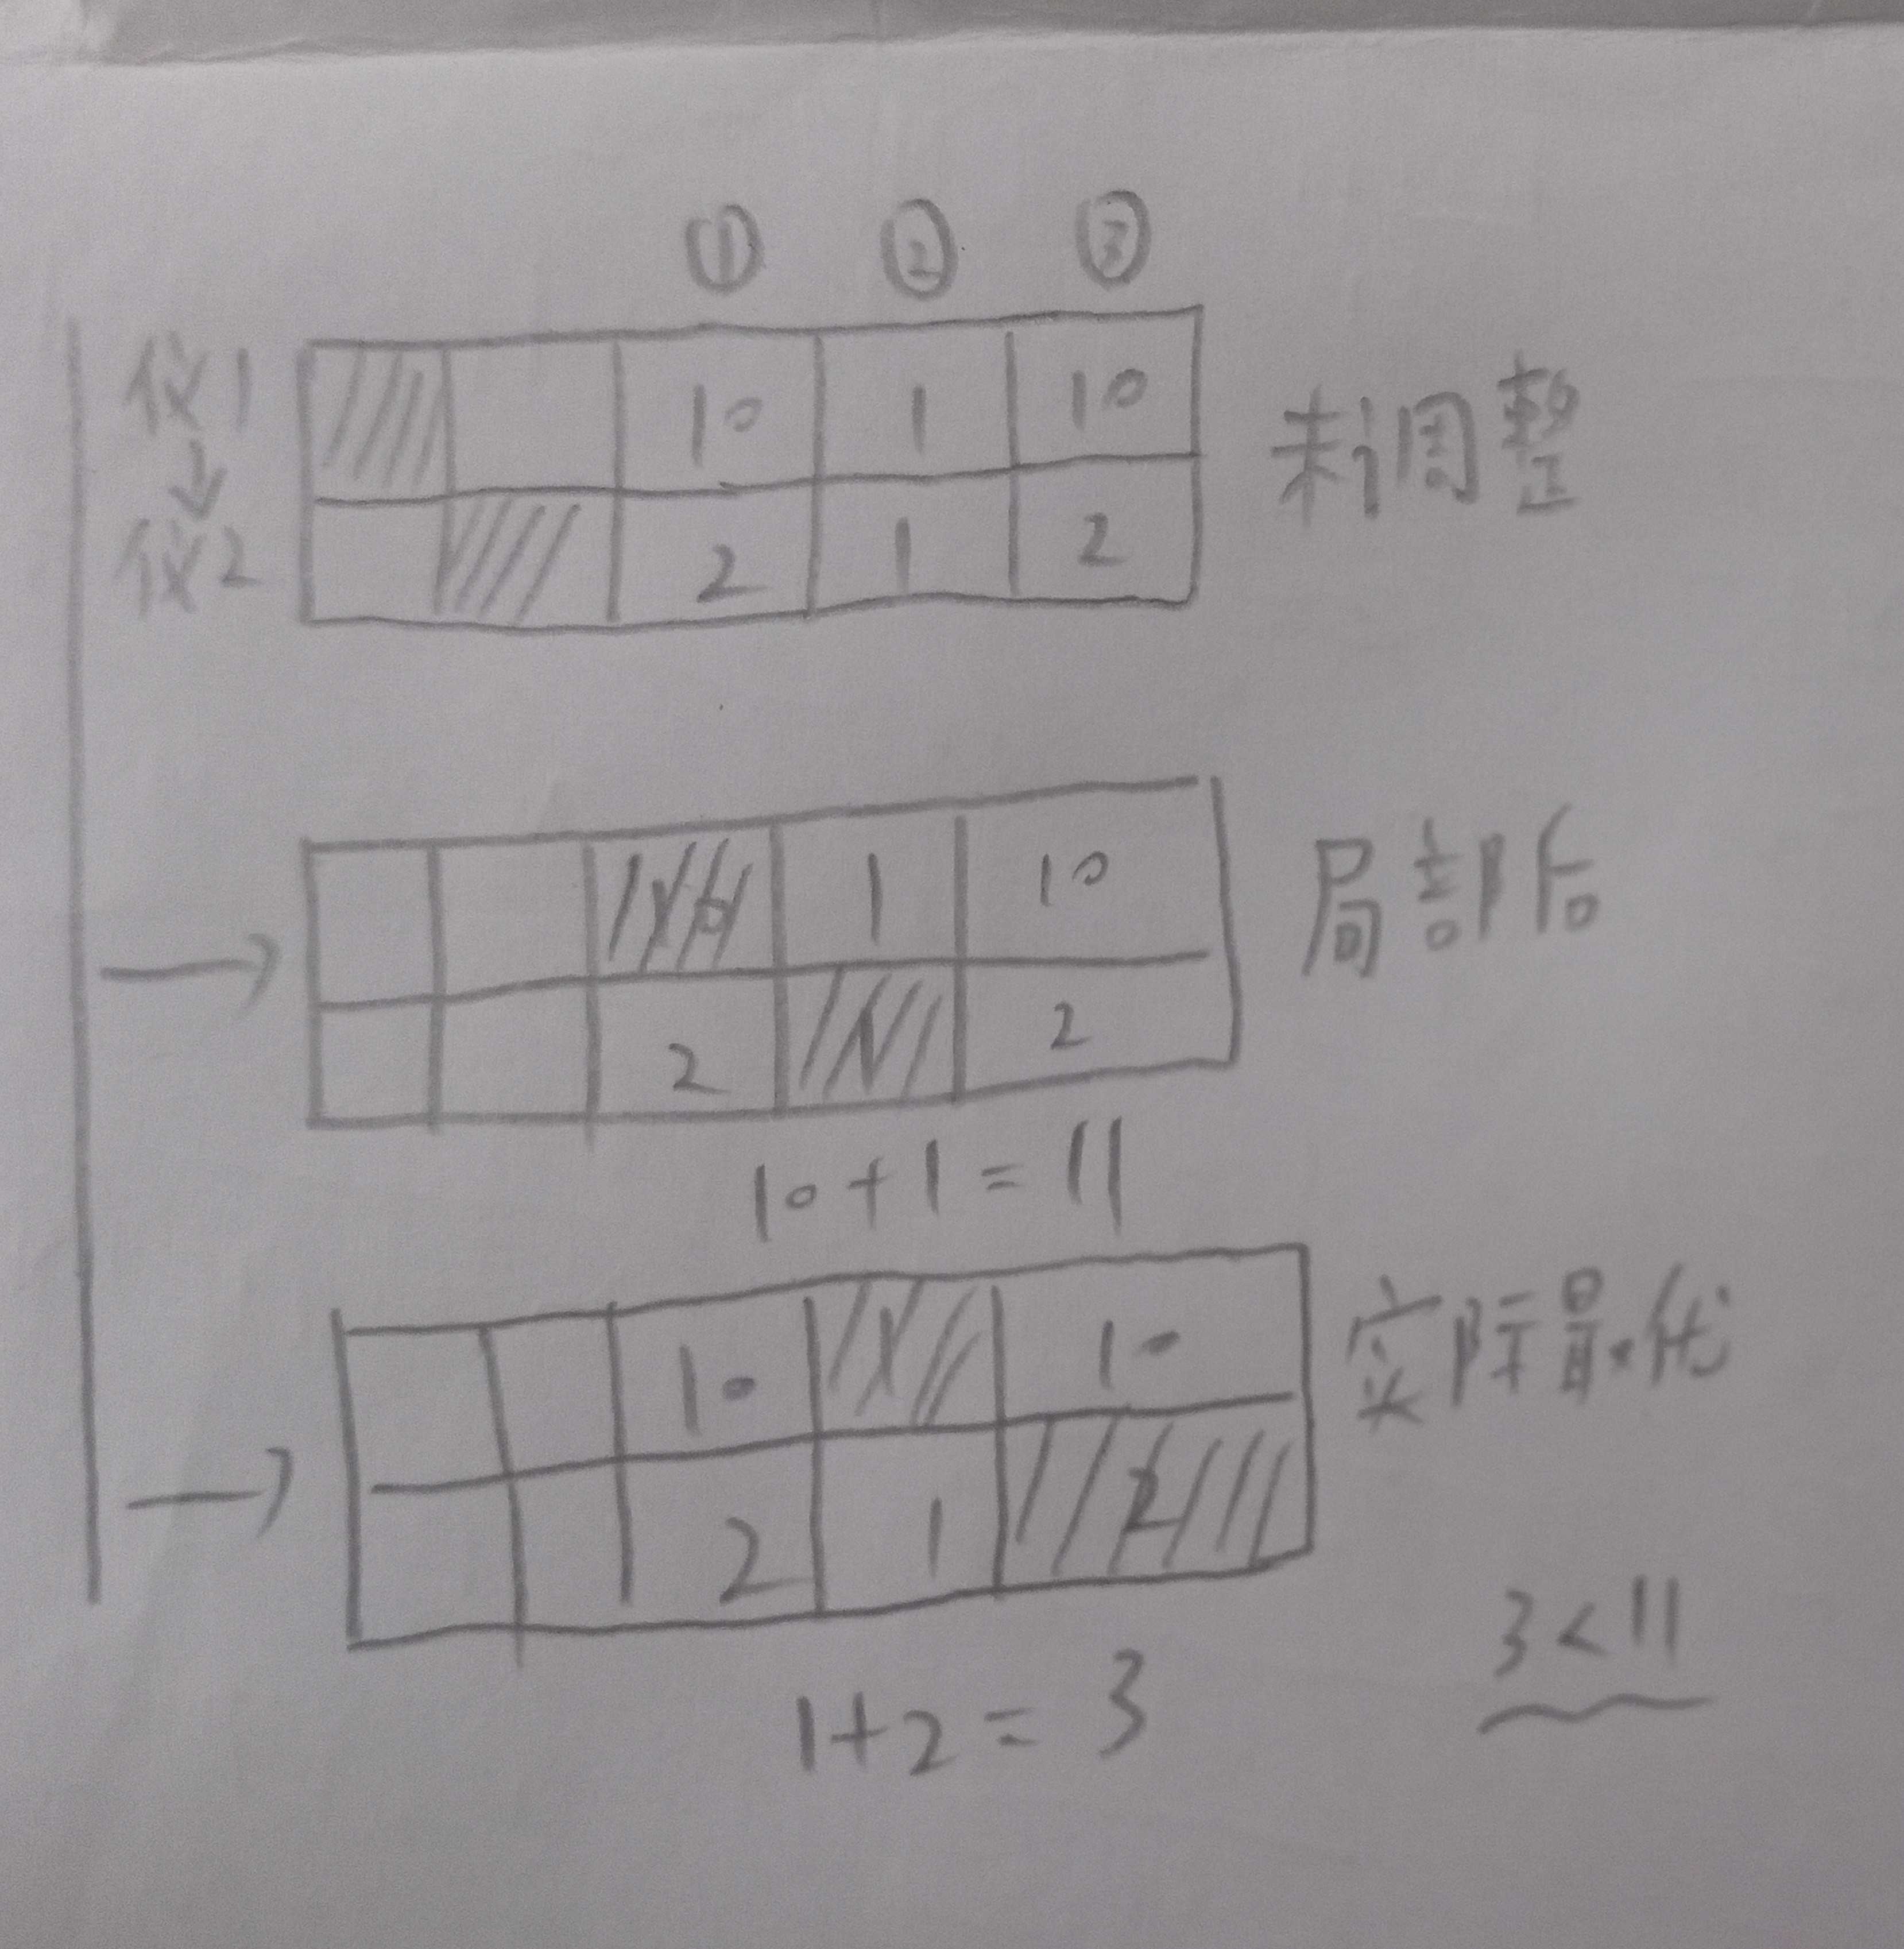 ① ② ③
仪1 10 1 10 未调整
↓
仪2 2 1 2
→ 10 1 10 局部后
2 1 2
10+1=11
→ 10 1 10 实际最优
2 1 2
3<11
1+2=3